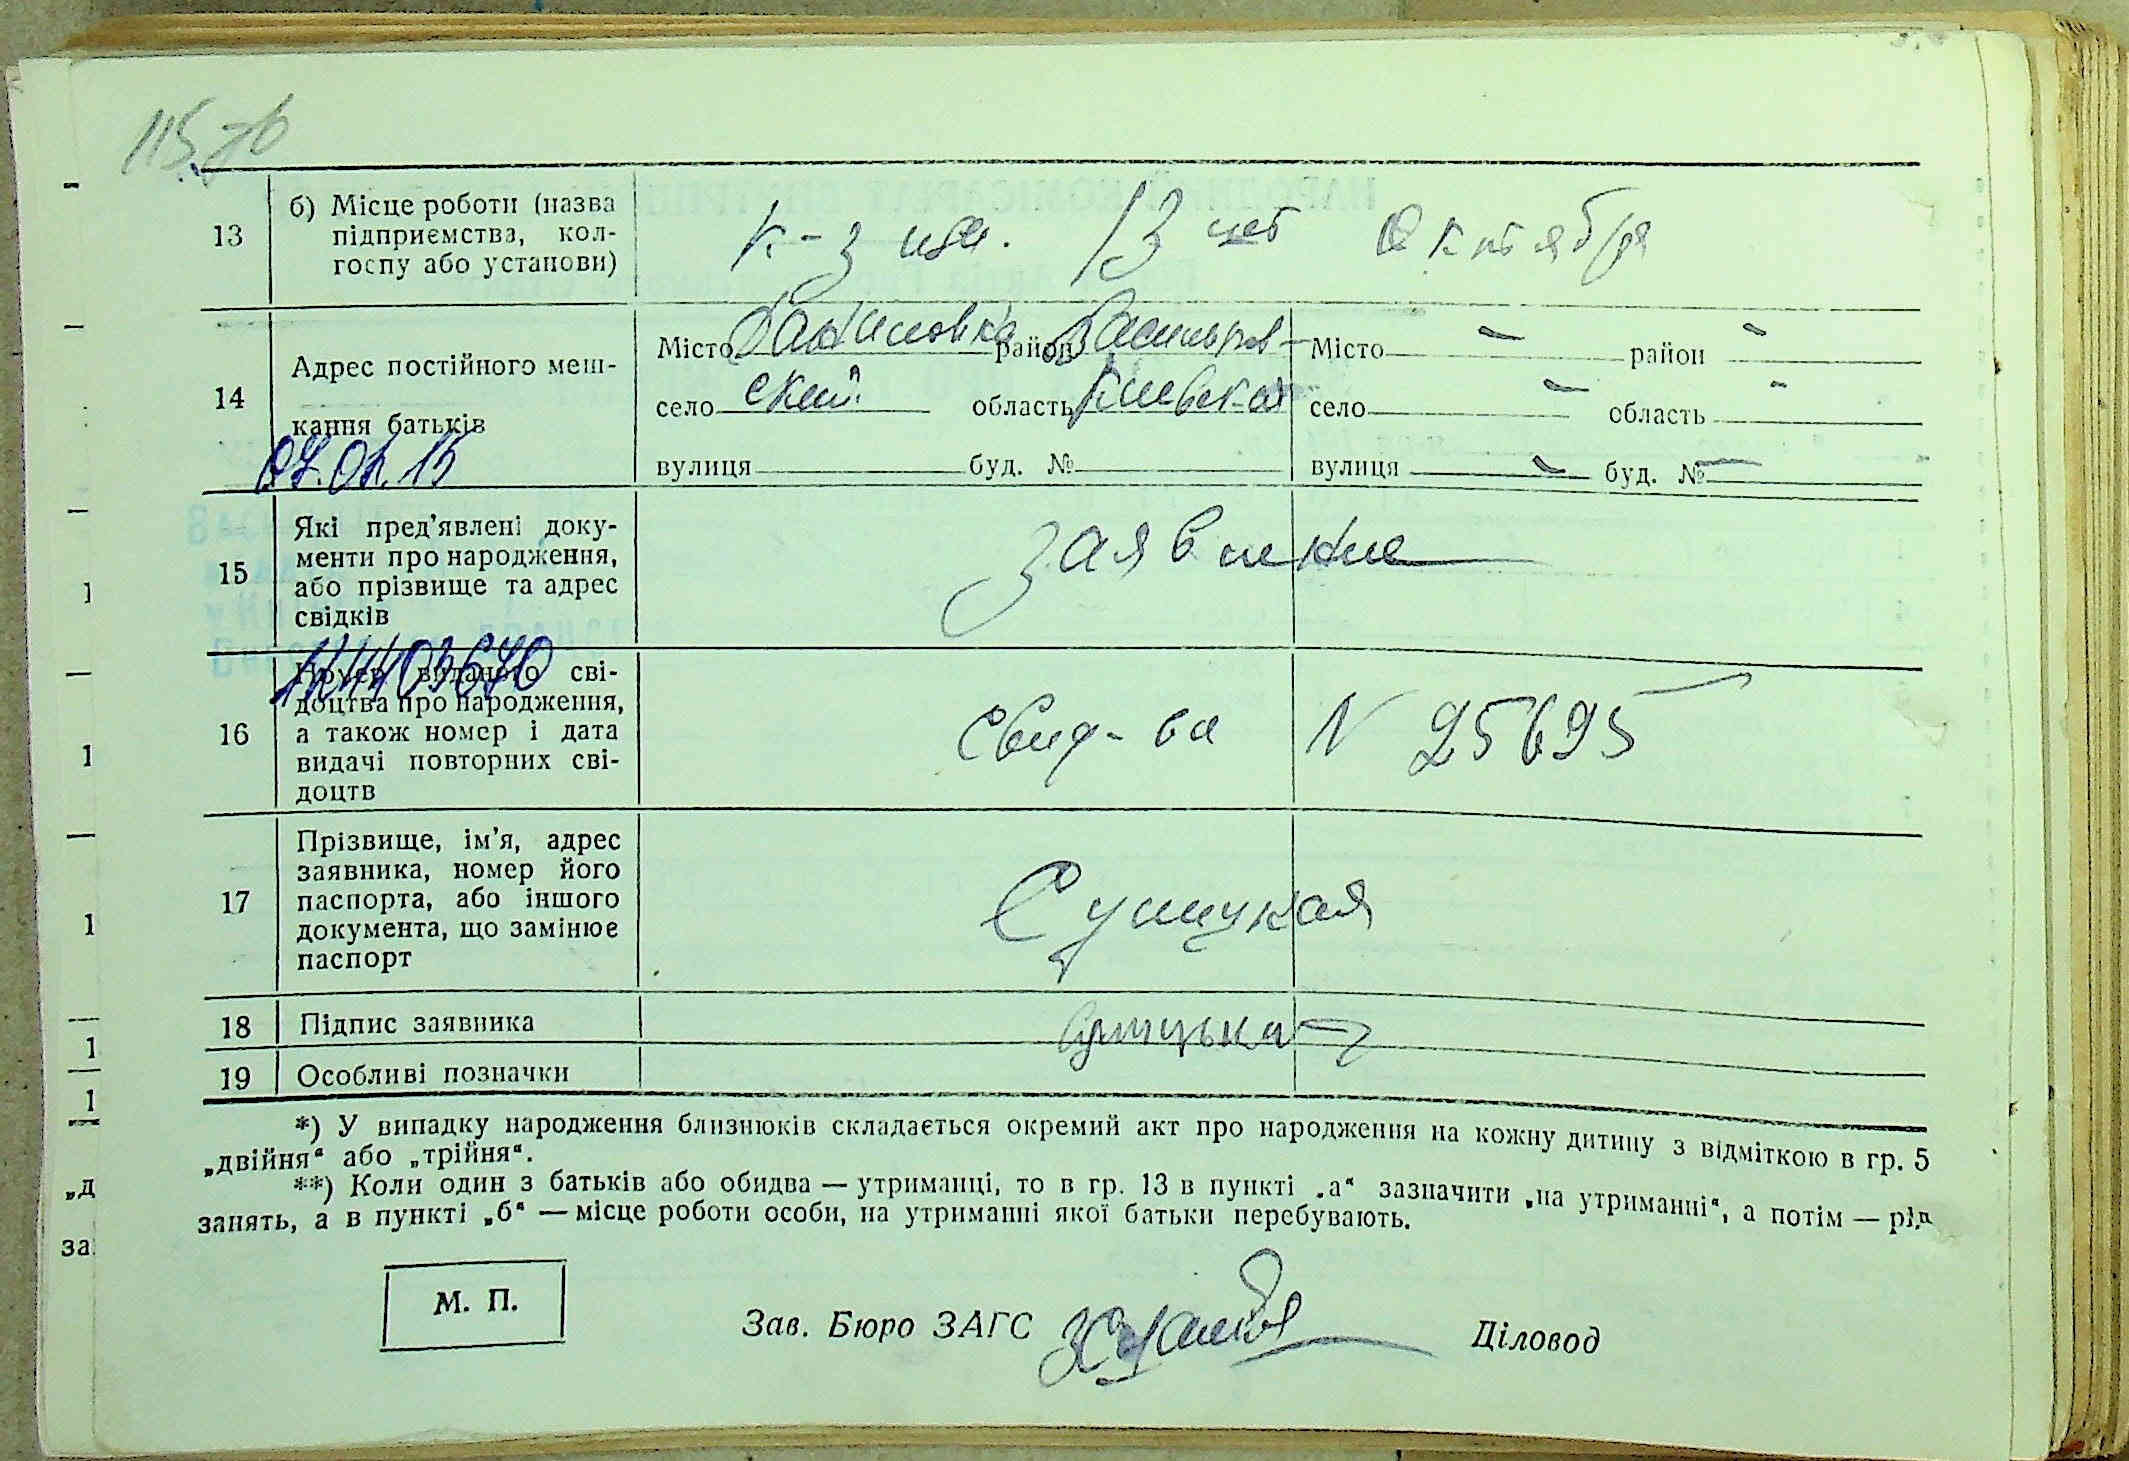 115 зв
13 б) Місце роботи (назва підприємства, колгоспу або установи) к-з им. 13 лет Октября
14 Адрес постійного мешкання батьків
Місто район Васильков-
ский
село область Киевская
вулиця буд. №
Місто - район -
село - область -
вулиця - буд. № -
07.01.15
15 Які пред'явлені доку-
менти про народження,
або прізвище та адрес
свідків
заявление
16 Номер виданого сві-
доцтва про народження,
а також номер і дата
видачі повторних сві-
доцтв
Свид-ва N 25695
17 Прізвище, ім'я, адрес
заявника, номер його
паспорта, або іншого
документа, що замінює
паспорт
18 Підпис заявника
19 Особливі позначки
*) У випадку народження близнюків складається окремий акт про народження на кожну дитину з відміткою в гр. 5
„двійня“ або „трійня“.
**) Коли один з батьків або обидва — утриманці, то в гр. 13 в пункті „а“ зазначити „на утриманні“, а потім — рід
занять, а в пункті „б“ — місце роботи особи, на утриманні якої батьки перебувають.
М. П.
Зав. Бюро ЗАГС
Діловод